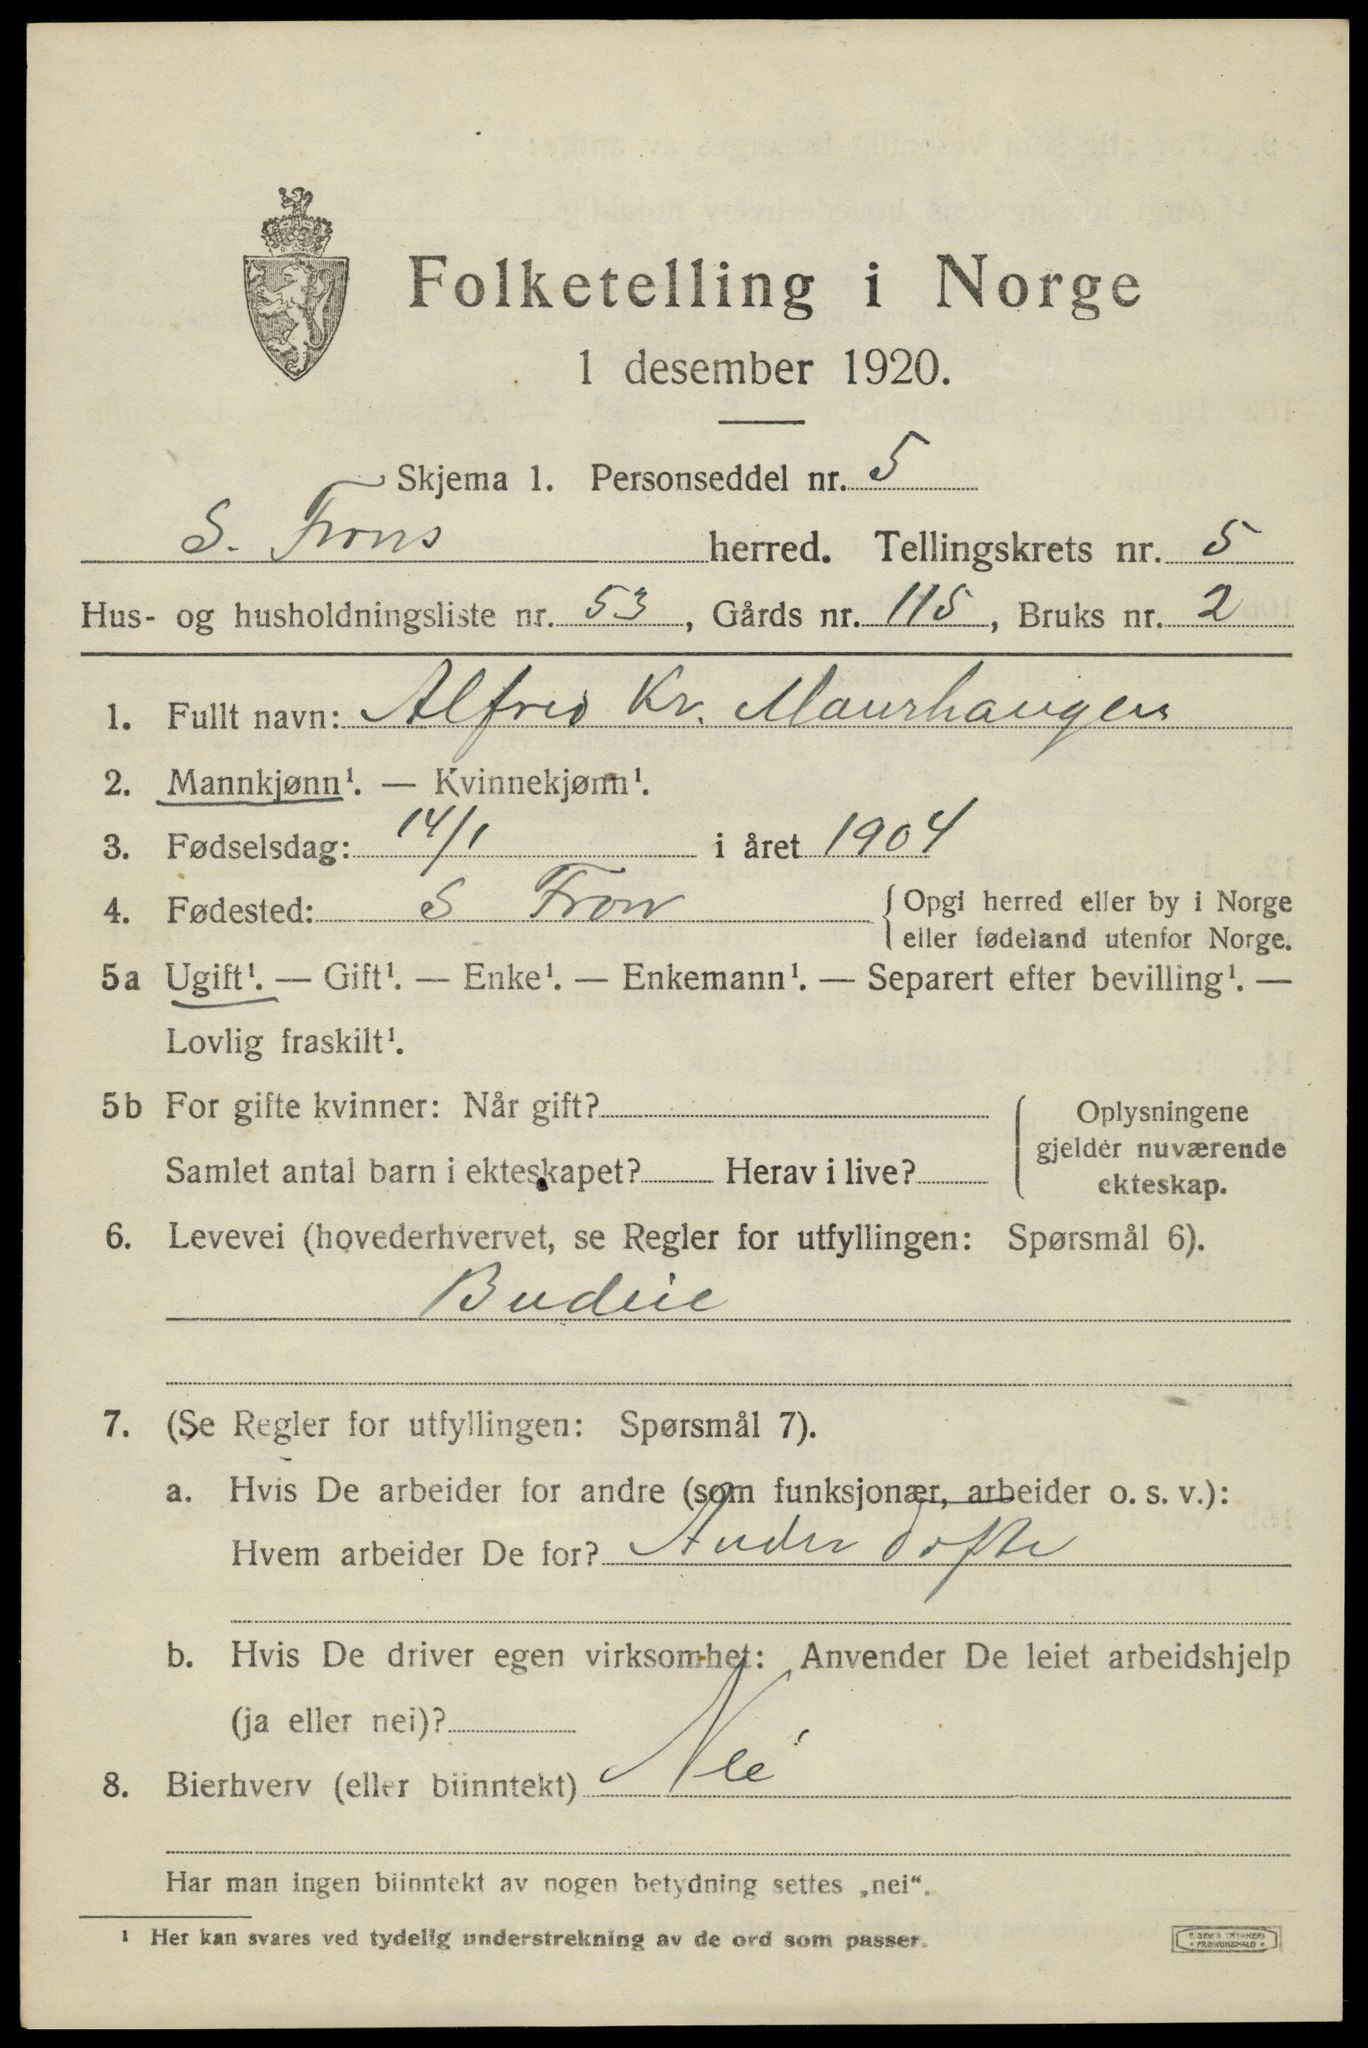 Folketelling i Norge
1 desember 1920.
Skjema 1. Personseddel nr. 5
S. Frons herred. Tellingskrets nr. 5
Hus- og husholdningsliste nr. 53, Gårds nr. 115, Bruks nr. 2
1. Fullt navn: Alfred Kr. Maurhaugen
2. Mannkjønn¹. — Kvinnekjønn¹.
3. Fødselsdag: 14/1 i året 1904
4. Fødested: S Fron {Opgi herred eller by i Norge
eller fødeland utenfor Norge.
5a Ugift¹. — Gift¹. — Enke¹. — Enkemann¹. — Separert efter bevilling¹. —
Lovlig fraskilt¹.
5b For gifte kvinner: Når gift?
Samlet antal barn i ekteskapet? Herav i live?
Oplysningene
gjelder nuværende
ekteskap.
6. Levevei (hovederhvervet, se Regler for utfyllingen: Spørsmål 6).
Budeie
7. (Se Regler for utfyllingen: Spørsmål 7).
a. Hvis De arbeider for andre (som funksjonær, arbeider o. s. v.):
Hvem arbeider De for? Anders Tofte
b. Hvis De driver egen virksomhet: Anvender De leiet arbeidshjelp
(ja eller nei)?
8. Bierhverv (eller biinntekt) Nei
Har man ingen biinntekt av nogen betydning settes „nei“.
¹ Her kan svares ved tydelig understrekning av de ord som passer.